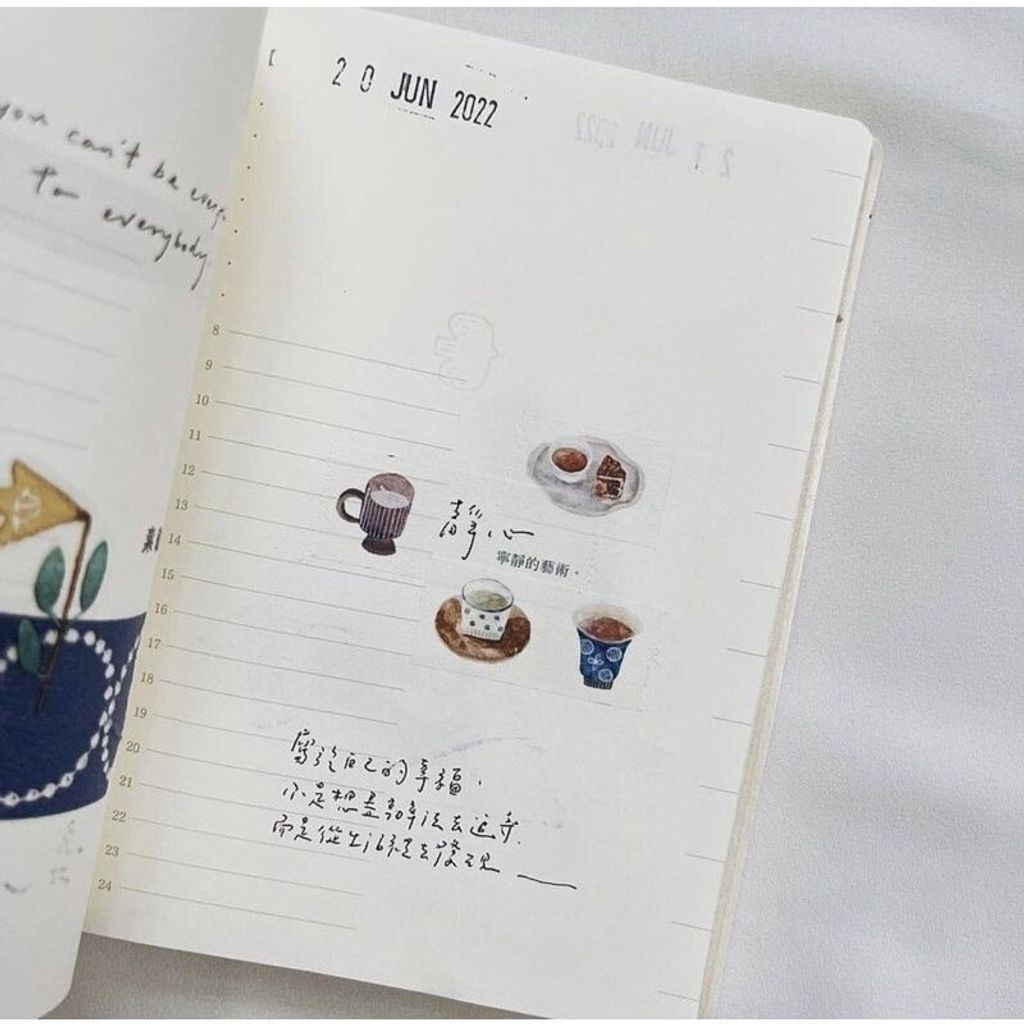 you can't be
to everybody
20 JUN 2022
21 JUN 2022
8
9
10
11
12
13
14
15
16
17
18
19
20
21
22
23
24
靜心
寧靜的藝術。
屬於自己的幸福,
不是想盡辦法去追尋,
而是從生活裡去發現——